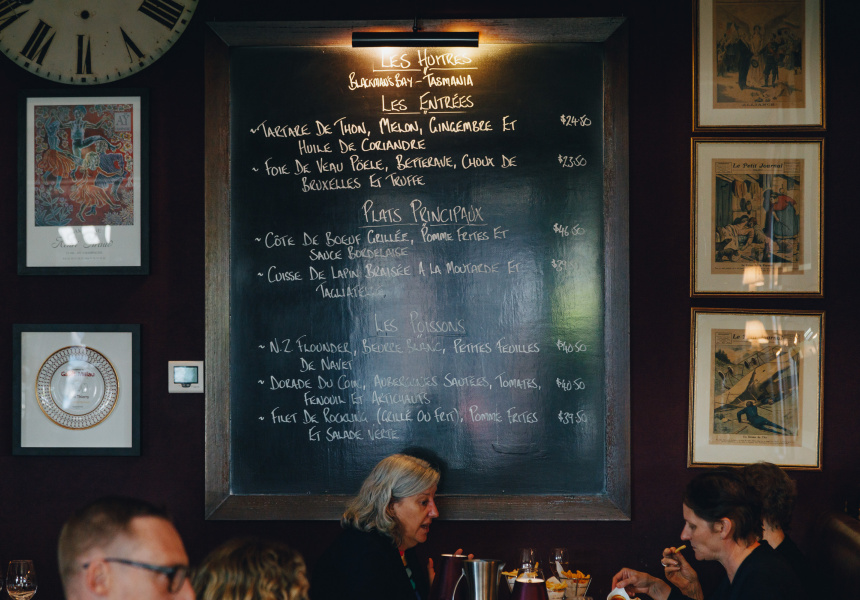 Les Huîtres
Blackman's Bay - Tasmania
Les Entrées
~ Tartare De Thon, Melon, Gingembre Et $24.50
Huile De Coriandre
~ Foie De Veau Pöele, Betterave, Choux De $23.50
Bruxelles Et Truffe
Plats Principaux
~ Côte De Boeuf Grillée, Pomme Frites Et $46.50
Sauce Bordelaise
~ Cuisse De Lapin Braisée A La Moutarde Et
~ N.Z Flounder, Beurre Blanc, Petites Feuilles $40.50
De Navet
Les Poissons
~ Dorade Du Coin, Aubergines Sautées, Tomates, $40.50
Fenouil Et Artichauts
~ Filet De Rockling (Grillé Ou Frit), Pomme Frites $39.50
Et Salade Verte
Le Petit Journal